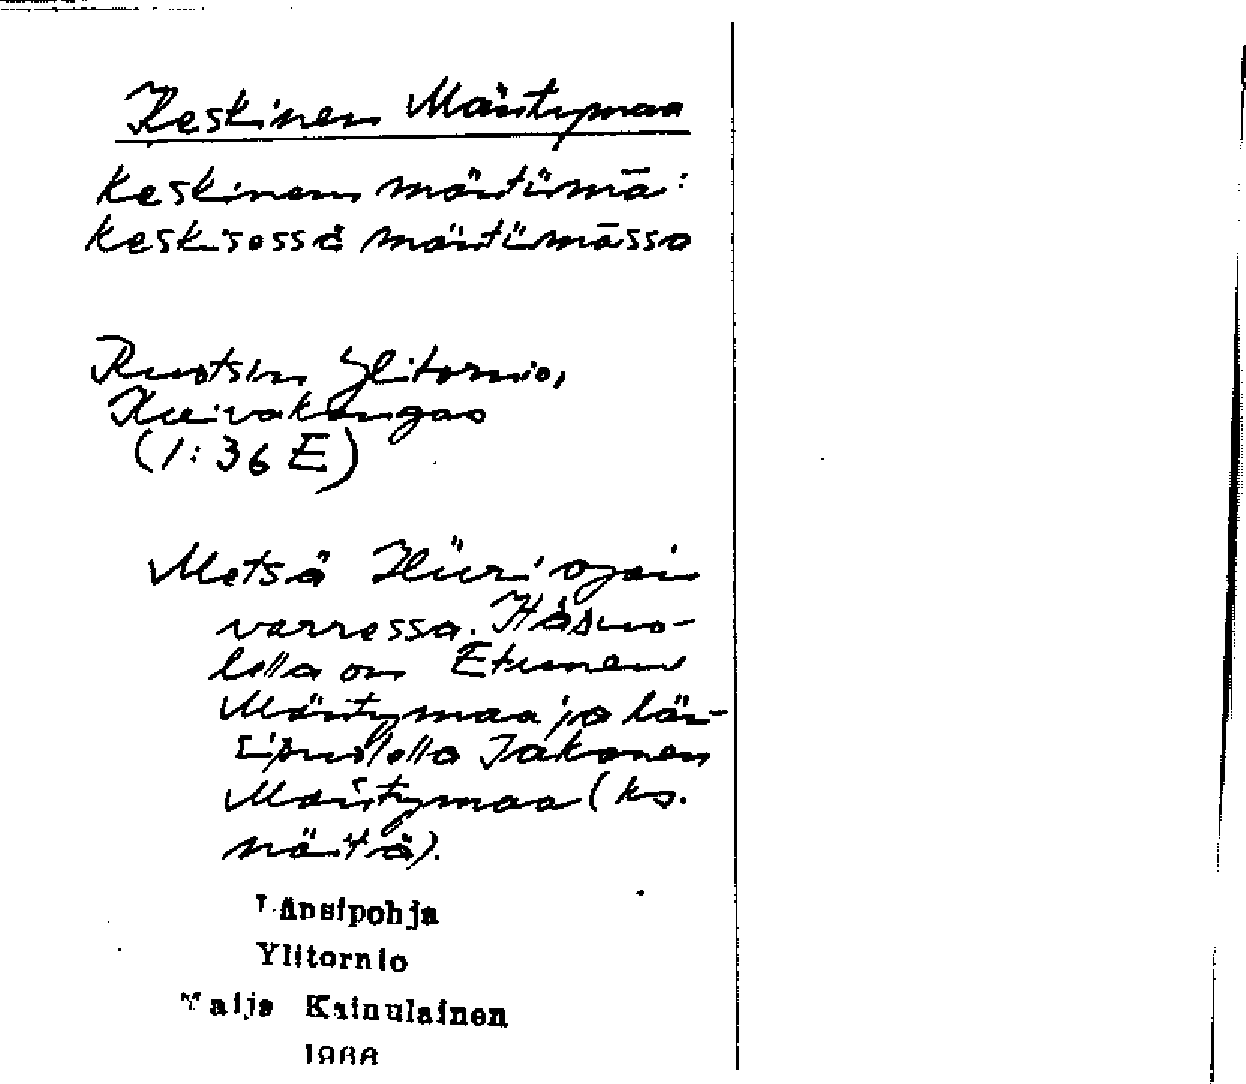 Keskinen Mäntymaa
keskinen mäntümā:
keskisessä mäntümāssa
Ruotsin Ylitornio,
Kuivakangas
(1:36 E)
Metsä Hüüri'ojan
varressa. Itäpuo-
lella on Etunen
Mäntymaa ja län-
sipuolella Takanen
Mäntymaa (ks.
näitä).
Länsipohja
Ylitornio
Maija Kainulainen